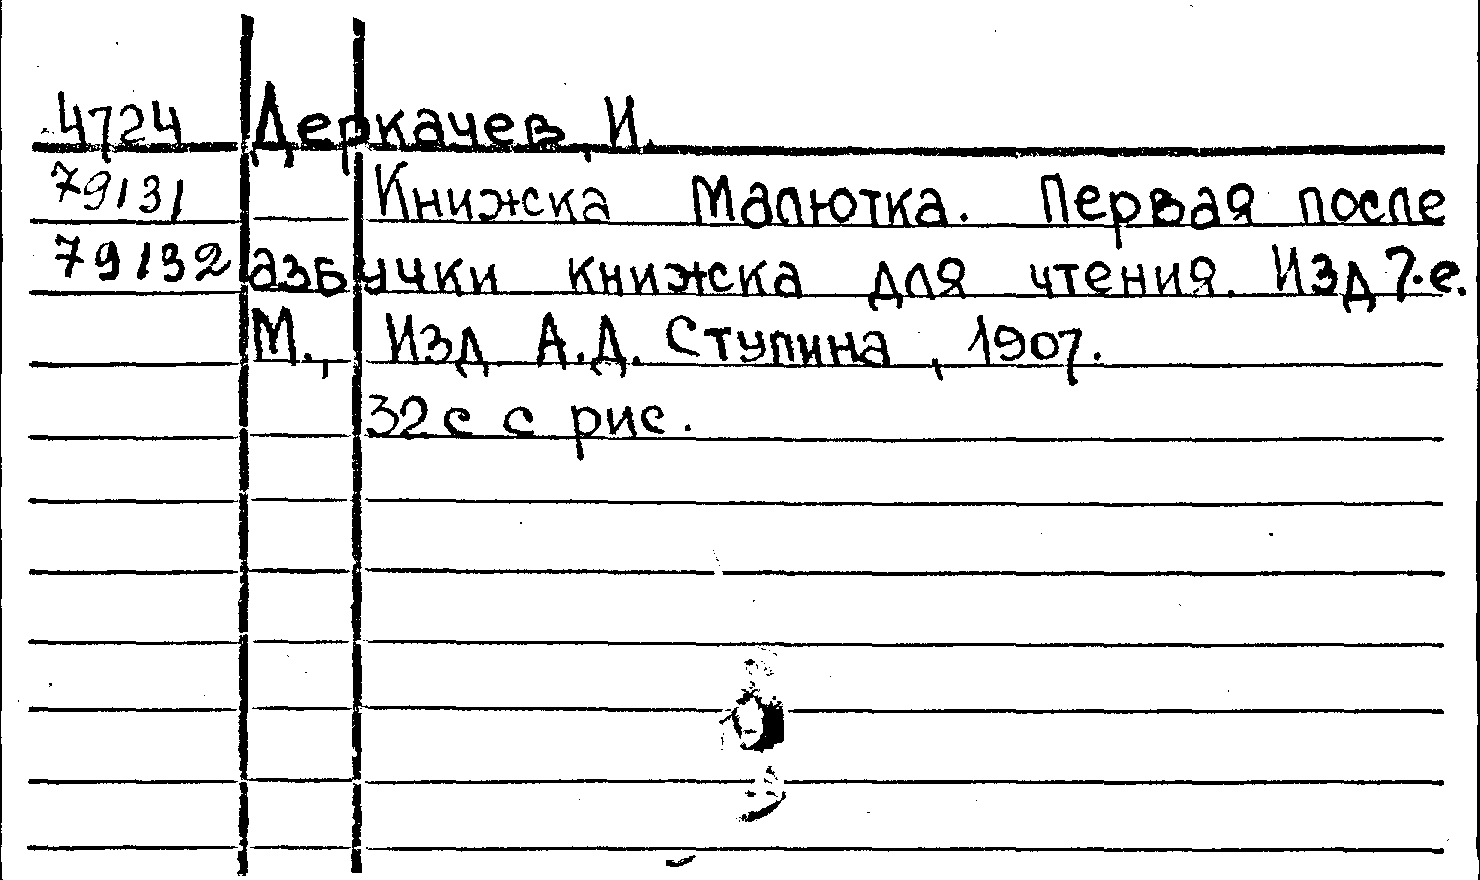 4724 Деркачев, И.
79131 Книжка Малютка. Первая после
79132 азбучки книжка для чтения. Изд 7.е.
М., Изд А.Д. Ступина, 1907.
32 с с рис.